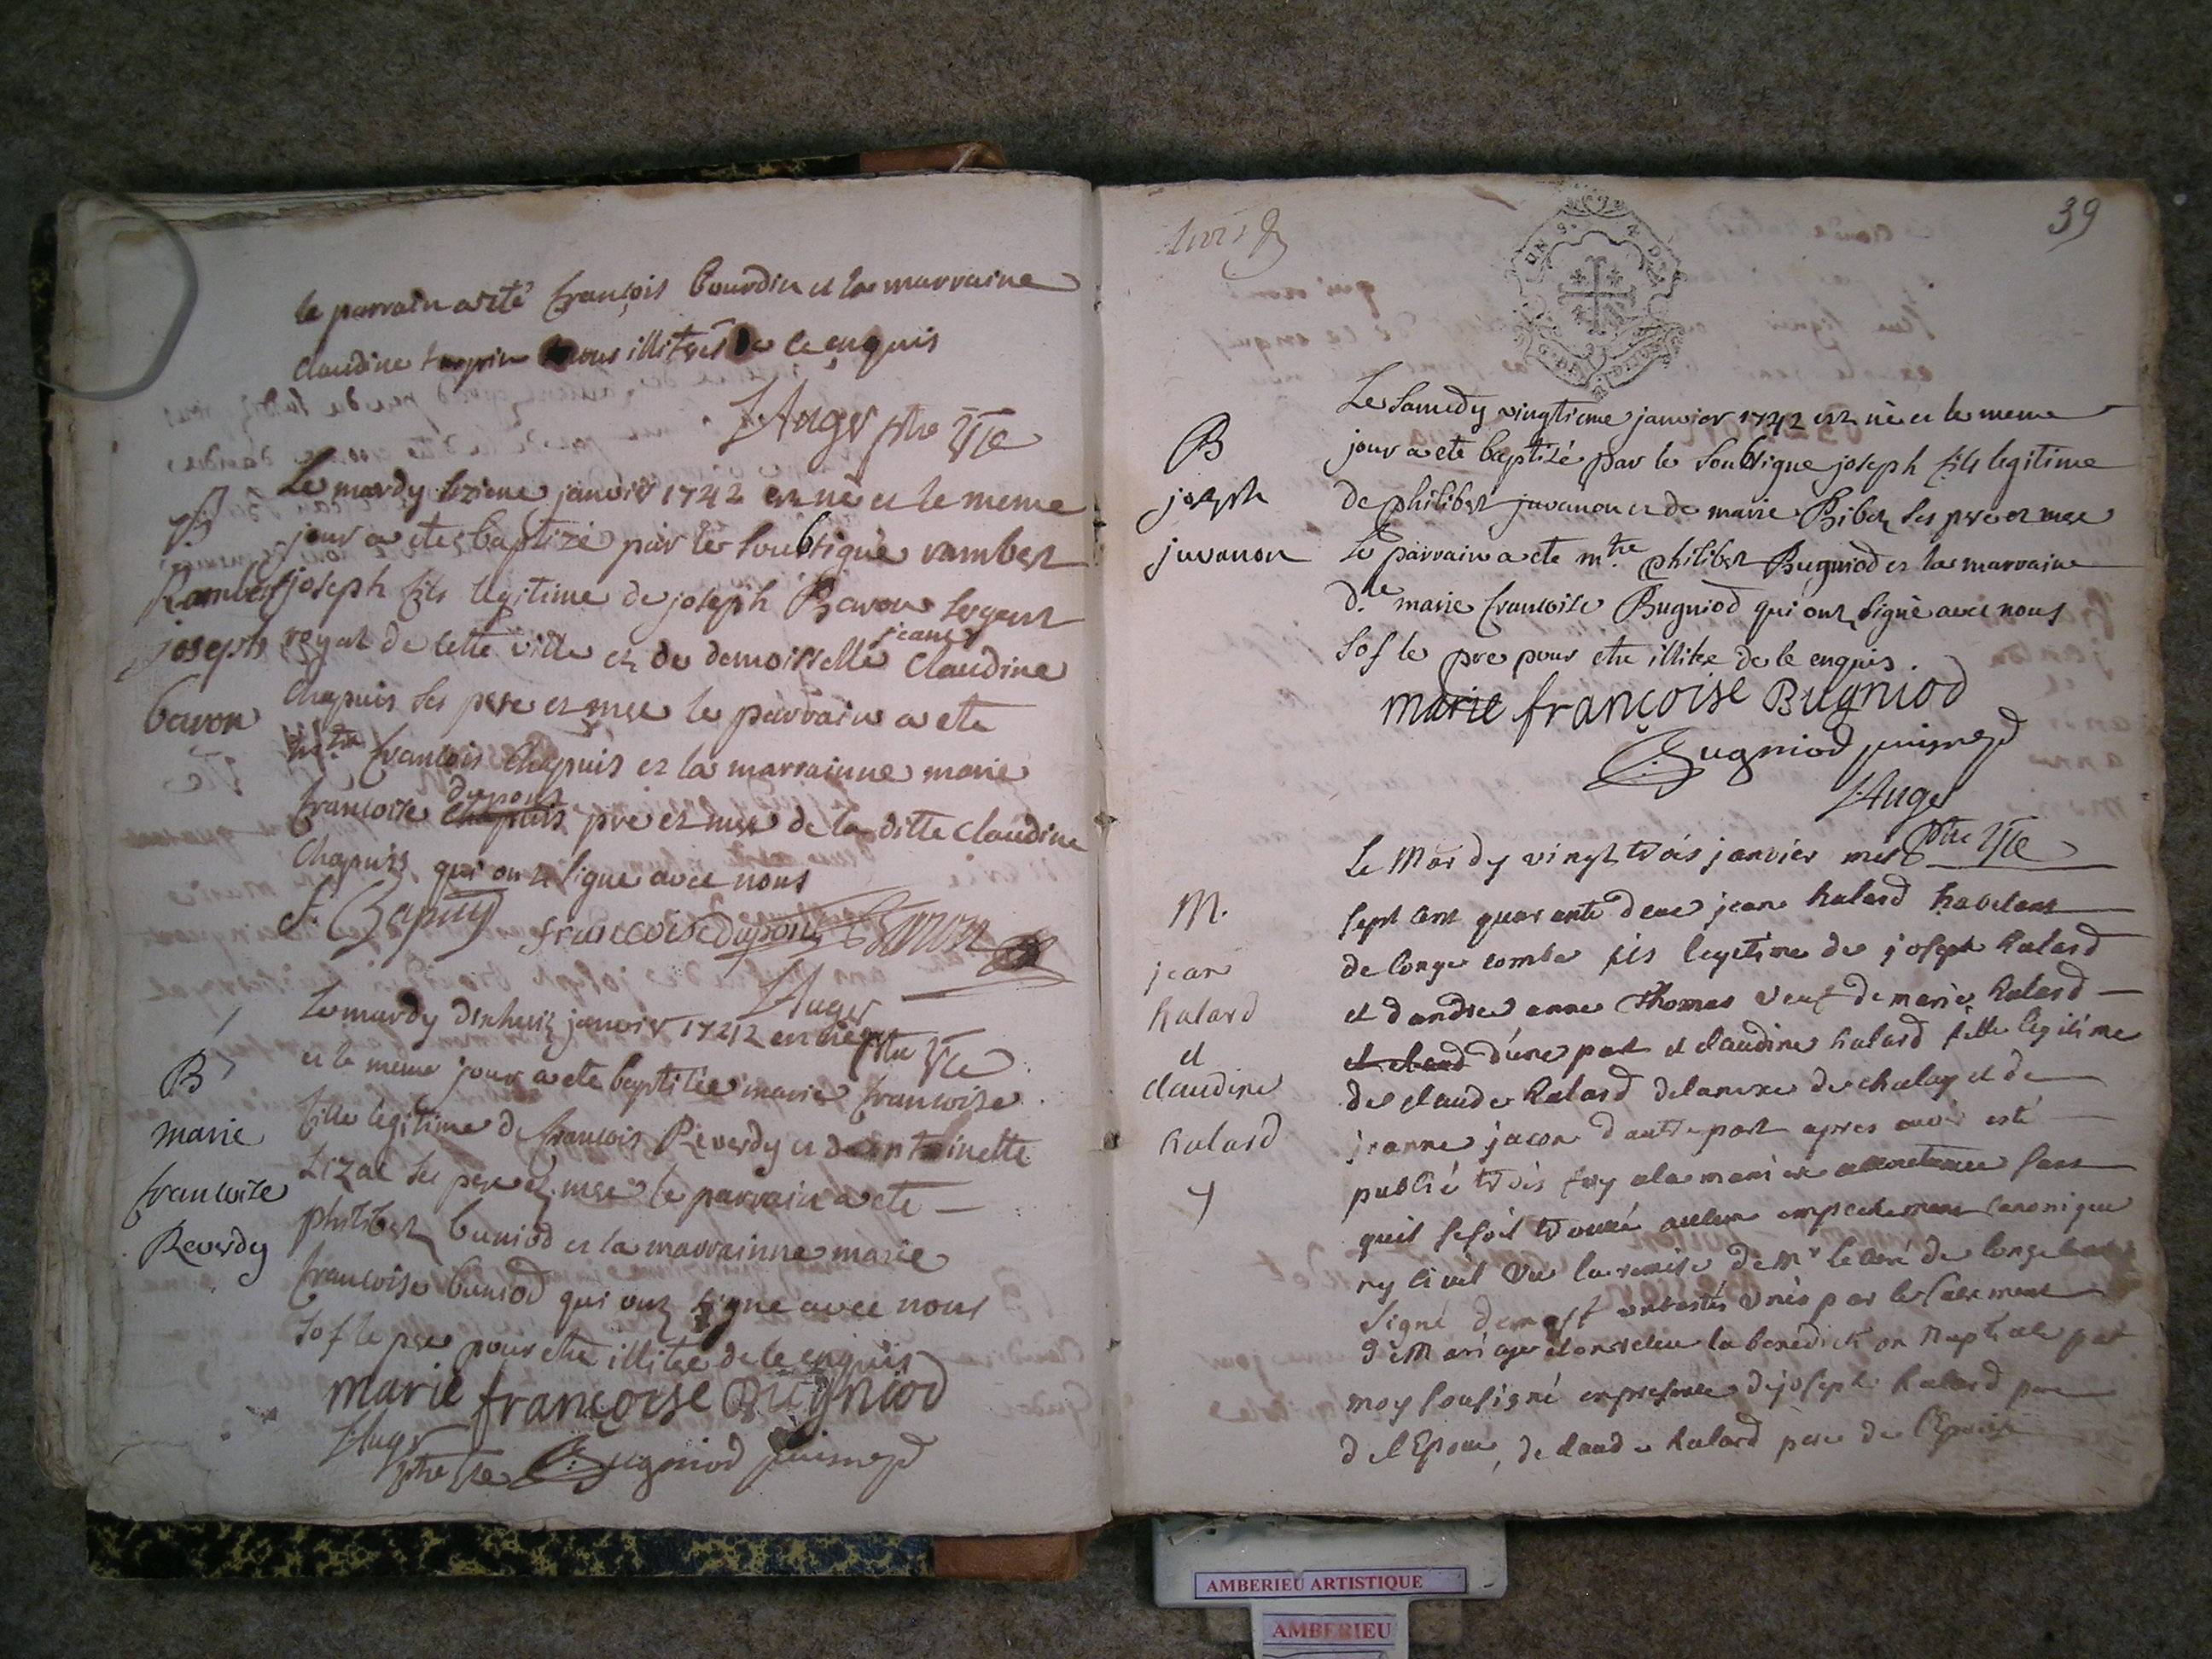 le parrain a eté françois bourdin et la marraine
claudine tous illitrés de ce enquis
J Auger ptre Vic
B
Rambert
joseph
bavon
Le mardy sezieme janvier 1742 est né et le meme
jour a ete baptizé par le soubsigné rambert
joseph fils legitime de joseph Bavon sergent
royal de cette ville et de demoisselle jeane claudine
Chapuis ses pere et mere le parrain a ete
mtre françois Chapuis et la marrainne marie
françoise chapuis dupont pere et mere de la ditte claudine
Chapuis qui ont signe avec nous
f. Chapuis françoise Dupont Bavon
J Auger
ptre Vic
B
marie
francoise
Reverdy
Le mardy dixhuit janvier 1742 est née
et le meme jour a ete baptisée marie francoise
fille legitime de francois Reverdy et dantoinette
ses pere et mere le parrain a ete
philibert buniod et la marrainne marie
francoise buniod qui ont signe avec nous
sof le pere pour etre illitere de ce enquis
marie françoise Bugniod
J Auger
ptre Vic Bugniod puisned
39
B
joseph
juvanon
Le Samedy vingtieme janvier 1742 est né et le meme
jour a ete baptizé par le soubsigne joseph fils legitime
de philibert juvanon et de marie Bibet ses pere et mere
le parrain a ete mtre philibert Bugniod et la marraine
dlle marie francoise Bugniod qui ont signé avec nous
sof le pere pour etre illitere de ce enquis.
marie françoise Bugniod
Bugniod puisned
J Auger
ptre Vic
M.
jean
halard
et
claudine
halard
Le Mardy vingt trois janvier mil
sept cent quarante deux jean halard habitant
de longe combe fils legitime de joseph halard
et dandree anne Thomas veuf de marie halard
et claud d'une part et claudine halard fille legitime
de claude halard de chaley et de
jeanne jacon d'autre part apres avoir esté
publié trois foy a la maniere accoutumee sans
quil se soit trouvé aucun empechement canonique
ny civil vu la remise de Mr le curé de longecombe
signé demost ont estés unis par le sacrement
de Mariage et ont receu la benediction nuptiale par
moy sousigné en presence de joseph halard pere
de lEpoux, de claude halard pere de l'Epouse
AMBERIEU ARTISTIQUE
AMBERIEU